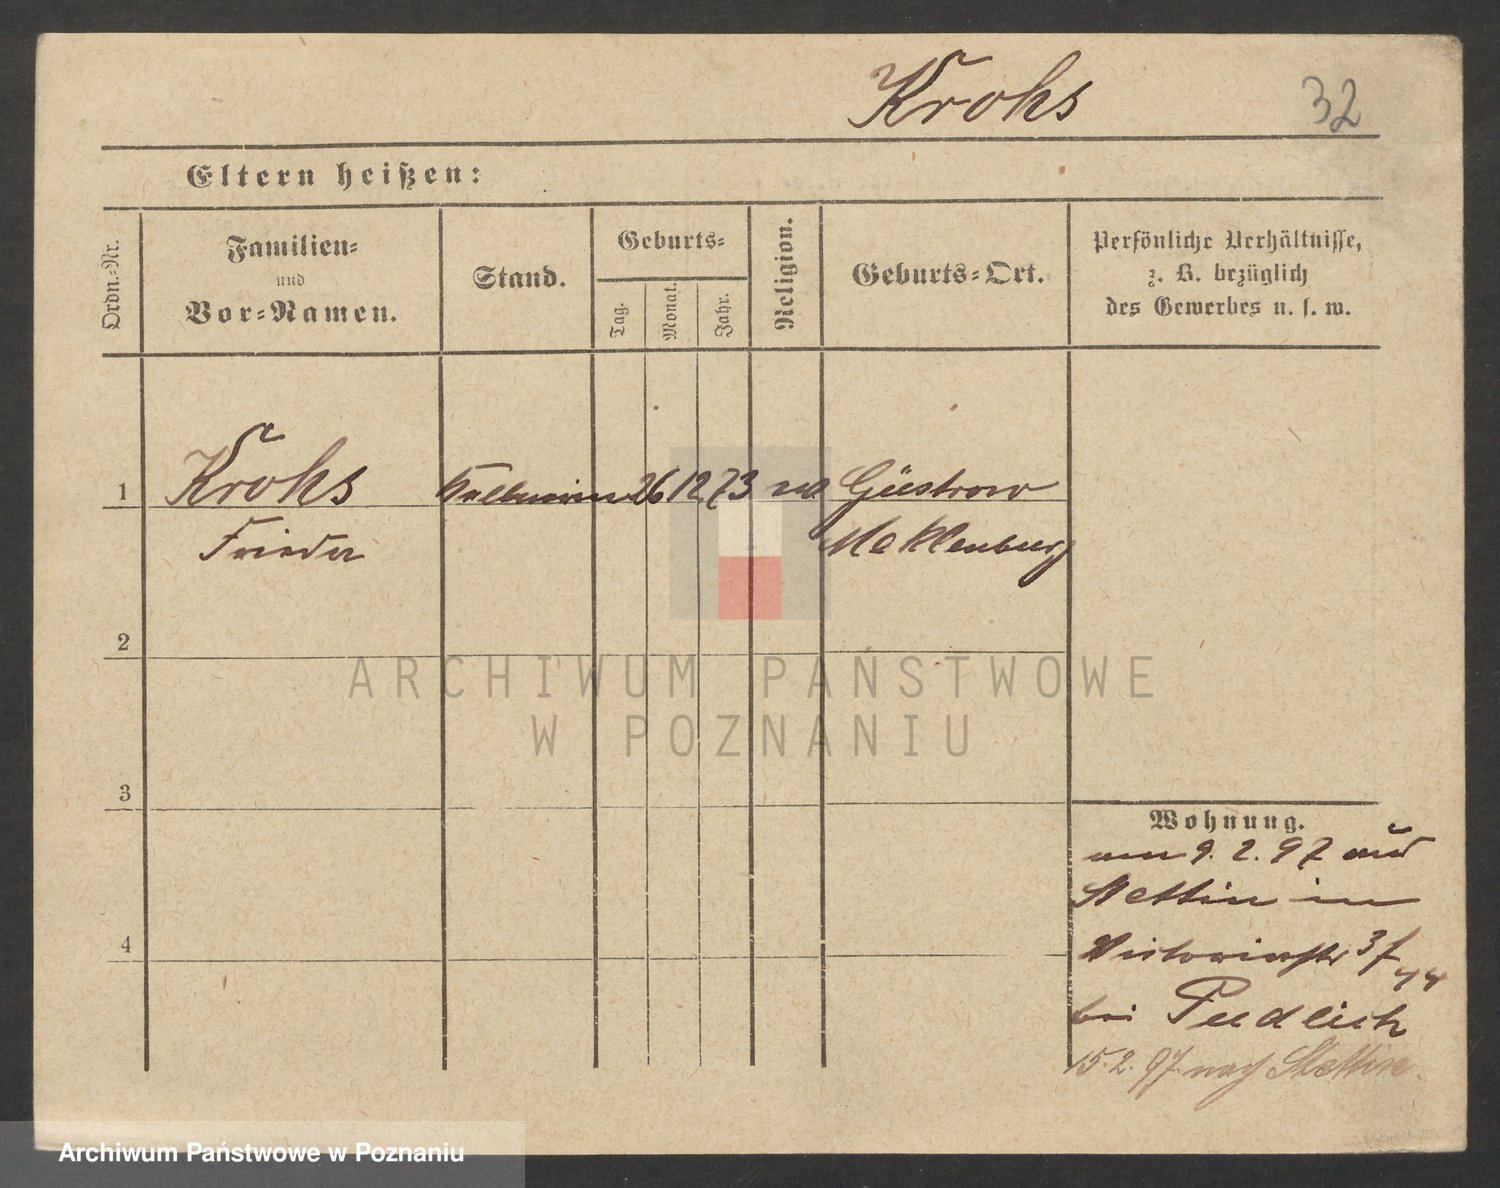 Krohs
32
Eltern heißen:
Ordn.-Nr.
Familien-
und
Vor-Namen.
Stand.
Geburts-
Tag.
Monat.
Jahr.
Religion.
Geburts-Ort.
Persönliche Verhältnisse,
z. B. bezüglich
des Gewerbes u. s. w.
1 Krohs Kellnerin 26 12 73 Güstrow
Frieda Meklenburg
2
3
4
Wohnung.
am 9. 2. 97 aus
Stettin in
Victoriastr
bei
15. 2. 97 nach Stettin
ARCHIWUM PAŃSTWOWE
W POZNANIU
Archiwum Państwowe w Poznaniu